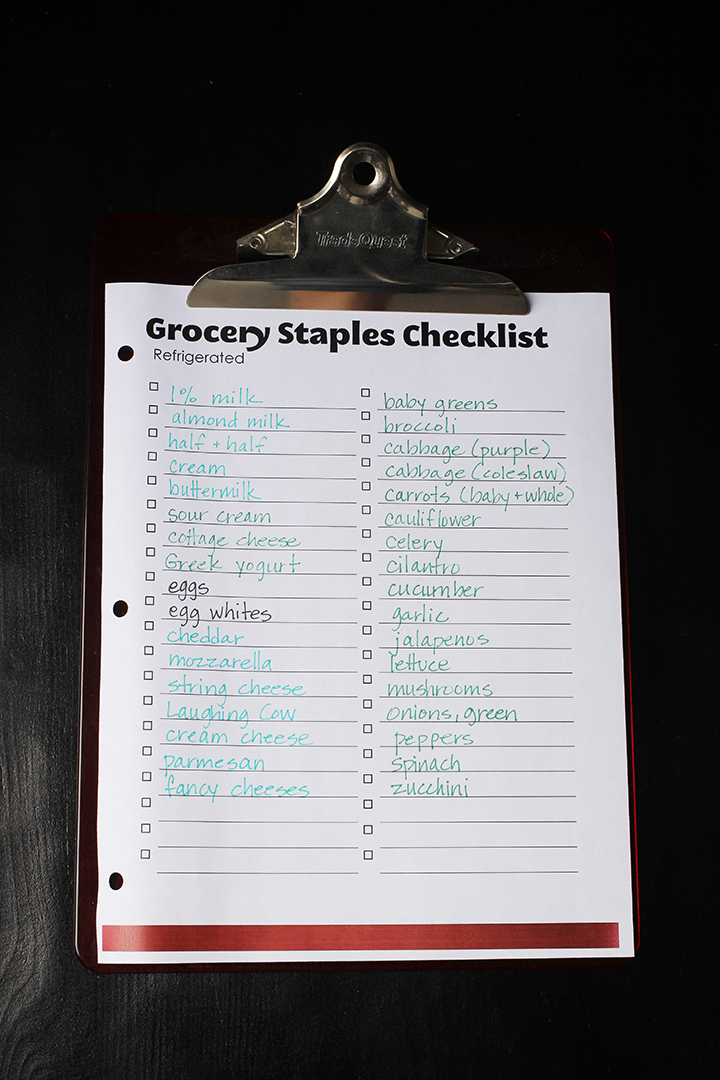 TradeQuest
Grocery Staples Checklist
Refrigerated
1% milk
almond milk
half + half
cream
buttermilk
sour cream
cottage cheese
Greek yogurt
eggs
egg whites
cheddar
mozzarella
string cheese
Laughing Cow
cream cheese
parmesan
fancy cheeses
baby greens
broccoli
cabbage (purple)
cabbage (coleslaw)
carrots (baby + whole)
cauliflower
celery
cilantro
cucumber
garlic
jalapenos
lettuce
mushrooms
onions, green
peppers
spinach
zucchini